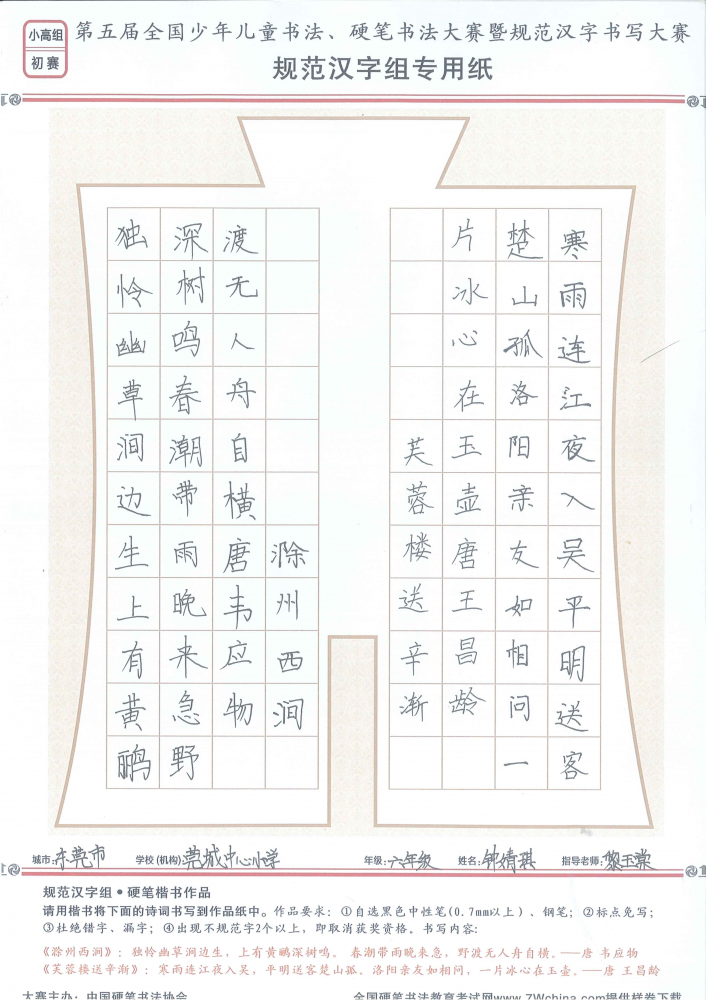 小高组
初赛
第五届全国少年儿童书法、硬笔书法大赛暨规范汉字书写大赛
规范汉字组专用纸
寒雨连江夜入吴平明送客
楚山孤洛阳亲友如相问一
片冰心在玉壶唐王昌龄
芙蓉楼送辛渐
独怜幽草涧边生上有黄鹂
深树鸣春潮带雨晚来急野
渡无人舟自横唐韦应物
滁州西涧
城市:东莞市 学校(机构):莞城中心小学 年级:六年级 姓名:钟婧琪 指导老师:黎玉棠
规范汉字组•硬笔楷书作品
请用楷书将下面的诗词书写到作品纸中。作品要求：①自选黑色中性笔(0.7mm以上)、钢笔；②标点免写；
③杜绝错字、漏字；④出现不规范字2个以上，即取消获奖资格。书写内容：
《滁州西涧》：独怜幽草涧边生，上有黄鹂深树鸣。 春潮带雨晚来急，野渡无人舟自横。——唐 韦应物
《芙蓉楼送辛渐》：寒雨连江夜入吴，平明送客楚山孤。洛阳亲友如相问，一片冰心在玉壶。——唐 王昌龄
大赛主办：中国硬笔书法协会 全国硬笔书法教育考试网www.7Wchina.com提供样卷下载